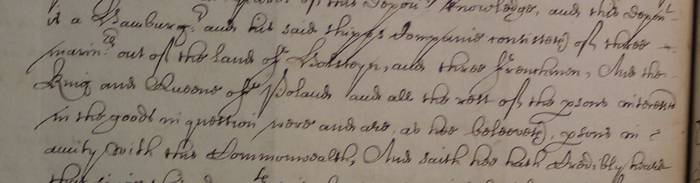 of this depon.ts knowledge, and this depon.t
is a Hamburg.r and his said shipps Companie consisted of three
marin.rs out of the land of Holsteyn, and three ffrenchmen, And the
King and Queene of Poland and all the rest of the psons interested
in the goods in question were and are, as hee beleeveth, psons in
amity with this Commonwealth, And saith hee hath credibly heard